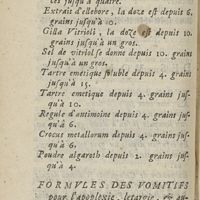 ces jusqu'à quatre.
Extrait d'ellebore, la doze est depuis 6.
grains jusqu'à 10.
Gilla Vitrioli, la doze est depuis 10.
grains jusqu'à un gros.
Sel de vitriol se donne depuis 10. grains
jusqu'à un gros.
Tartre emetique soluble depuis 4. grains
jusqu'à 15.
Tartre emetique depuis 4. grains jus-
qu'à 10.
Regule d'antimoine depuis 4. grains jus-
qu'à 6.
Crocus metallorum depuis 4. grains jus-
qu'à 6.
Poudre algaroth depuis 2. grains jus-
qu'à 4.
FORMVLES DES VOMITIFS
pour l'apoplexie, letargie, & au-